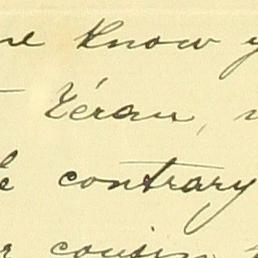 know
Zéran,
contrary
cousin